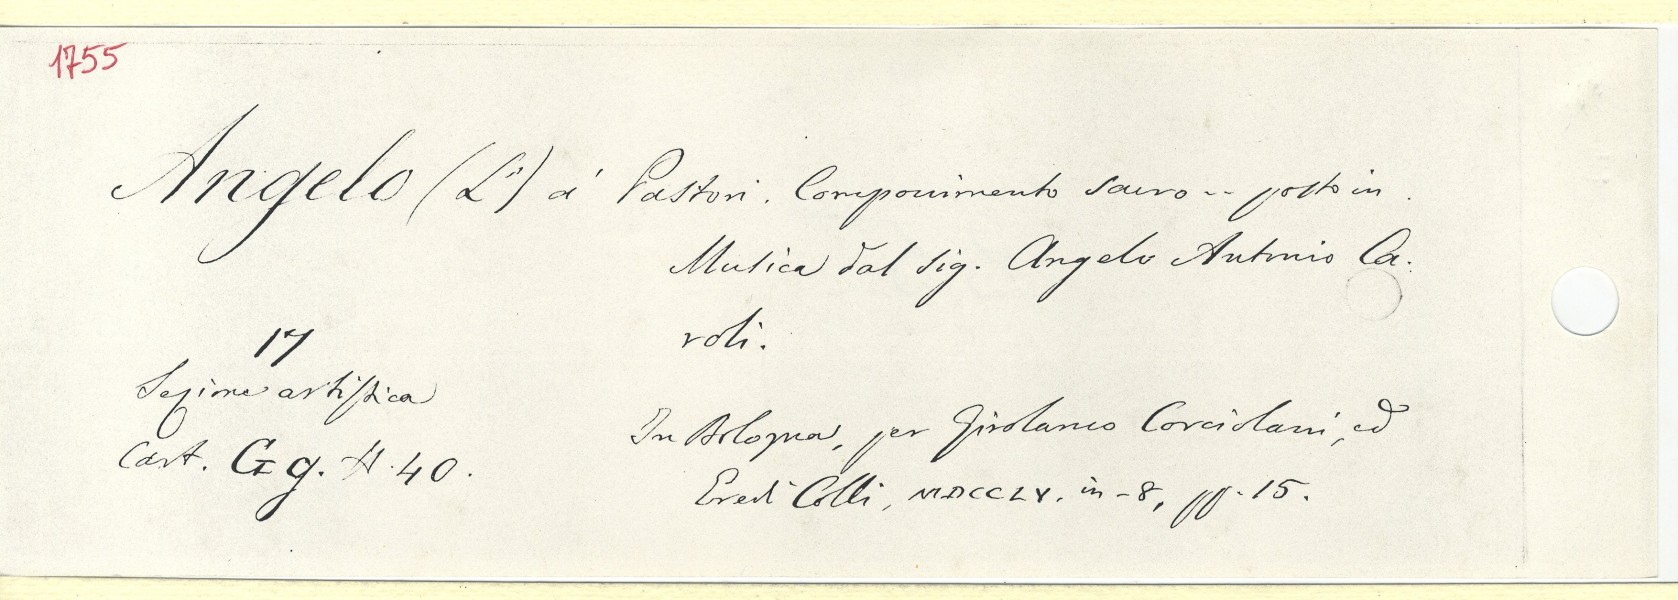 1755
Angelo (L') a' Pastori. Componimento sacro -- posto in
Musica dal sig. Angelo Antonio Ca-
roli.
17
Sezione artistica
Cart. Gg. N. 40.
In Bologna, per Girolamo Corciolani, ed
Eredi Colli, MDCCLV. in-8, pp. 15.